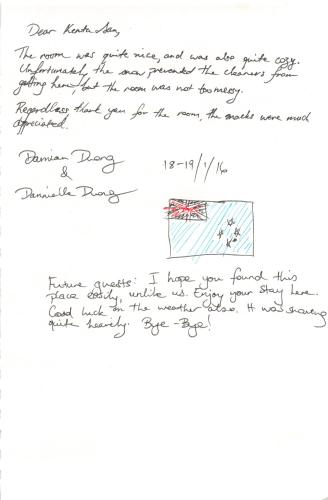 Dear Kenta San,
The room was quite nice, and was also quite cozy.
Unfortunately, the snow prevented the cleaners from
getting here but the room was not too messy.
Regardless thank you for the room, the snacks were much
appreciated.
Damian Duong 18-19/1/16
&
Dannielle Duong
Future guests: I hope you found this
place easily, unlike us. Enjoy your stay here.
Good luck on the weather also. It was snowing
quite heavily. Bye-Bye!